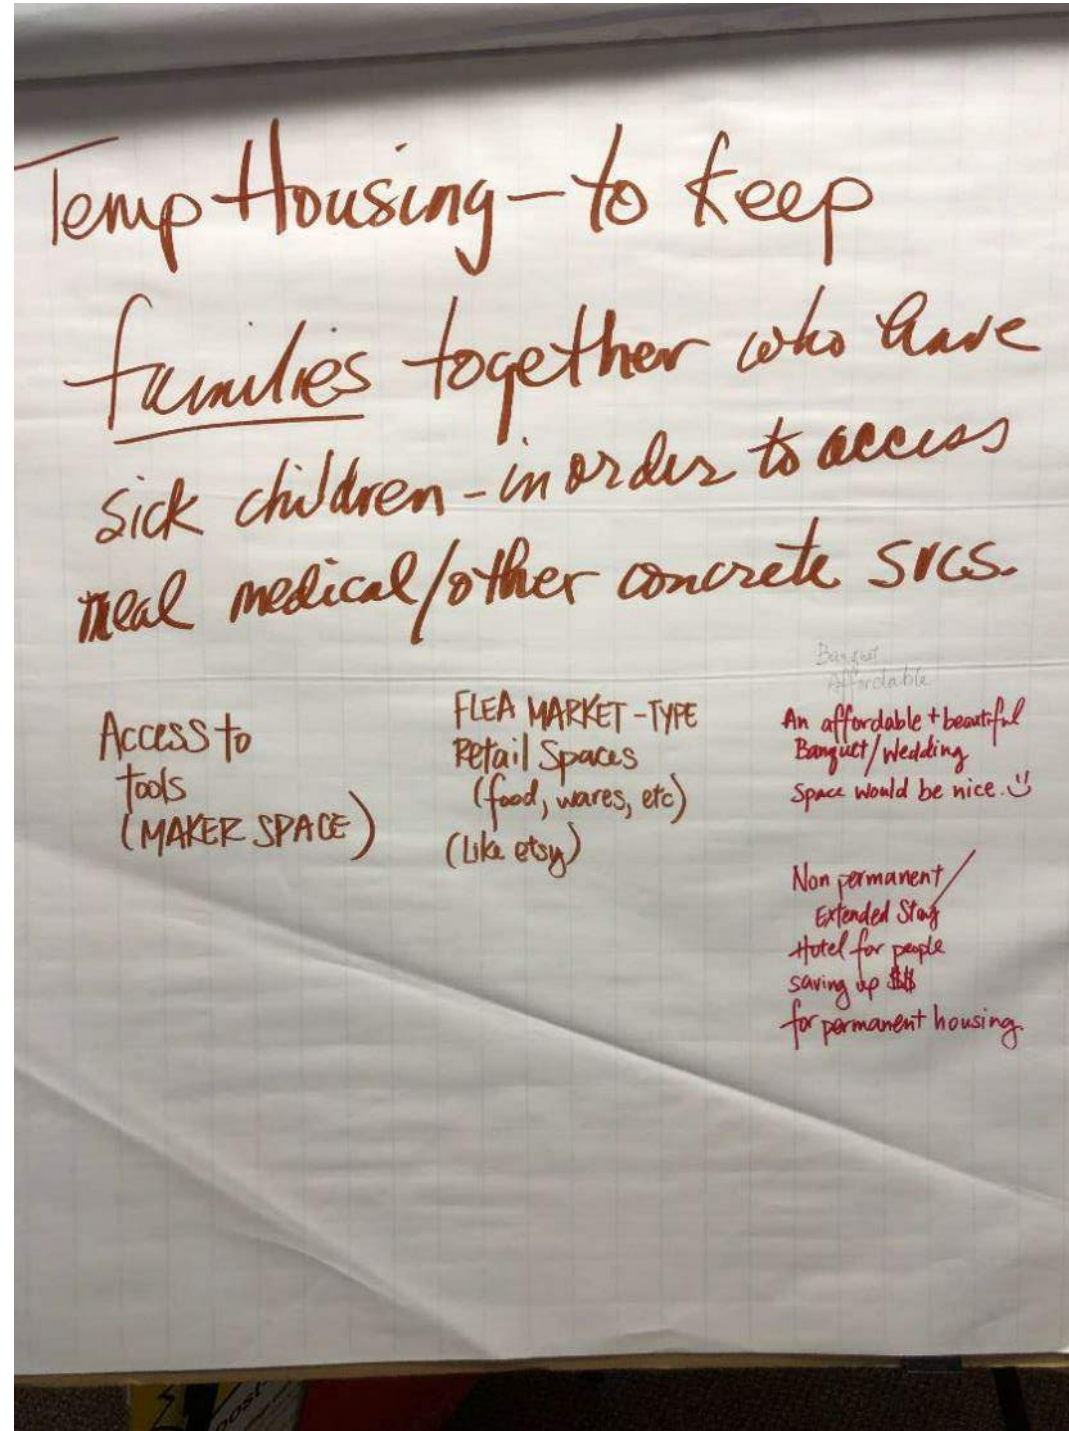 Temp Housing - to keep
families together who have
sick children - in order to access
meal medical/other concrete svcs.
Access to
tools
(MAKER SPACE)
FLEA MARKET - TYPE
Retail Spaces
(food, wares, etc)
(Like etsy)
Banquet
Affordable
An affordable + beautiful
Banquet/Wedding
Space would be nice. :)
Non permanent/
Extended Stay
Hotel for people
saving up $$$
for permanent housing.